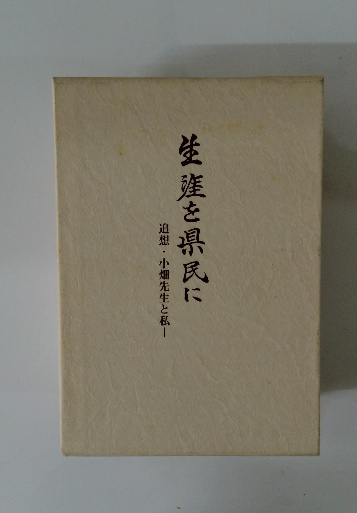 生涯を県民に
追想・小畑先生と私―